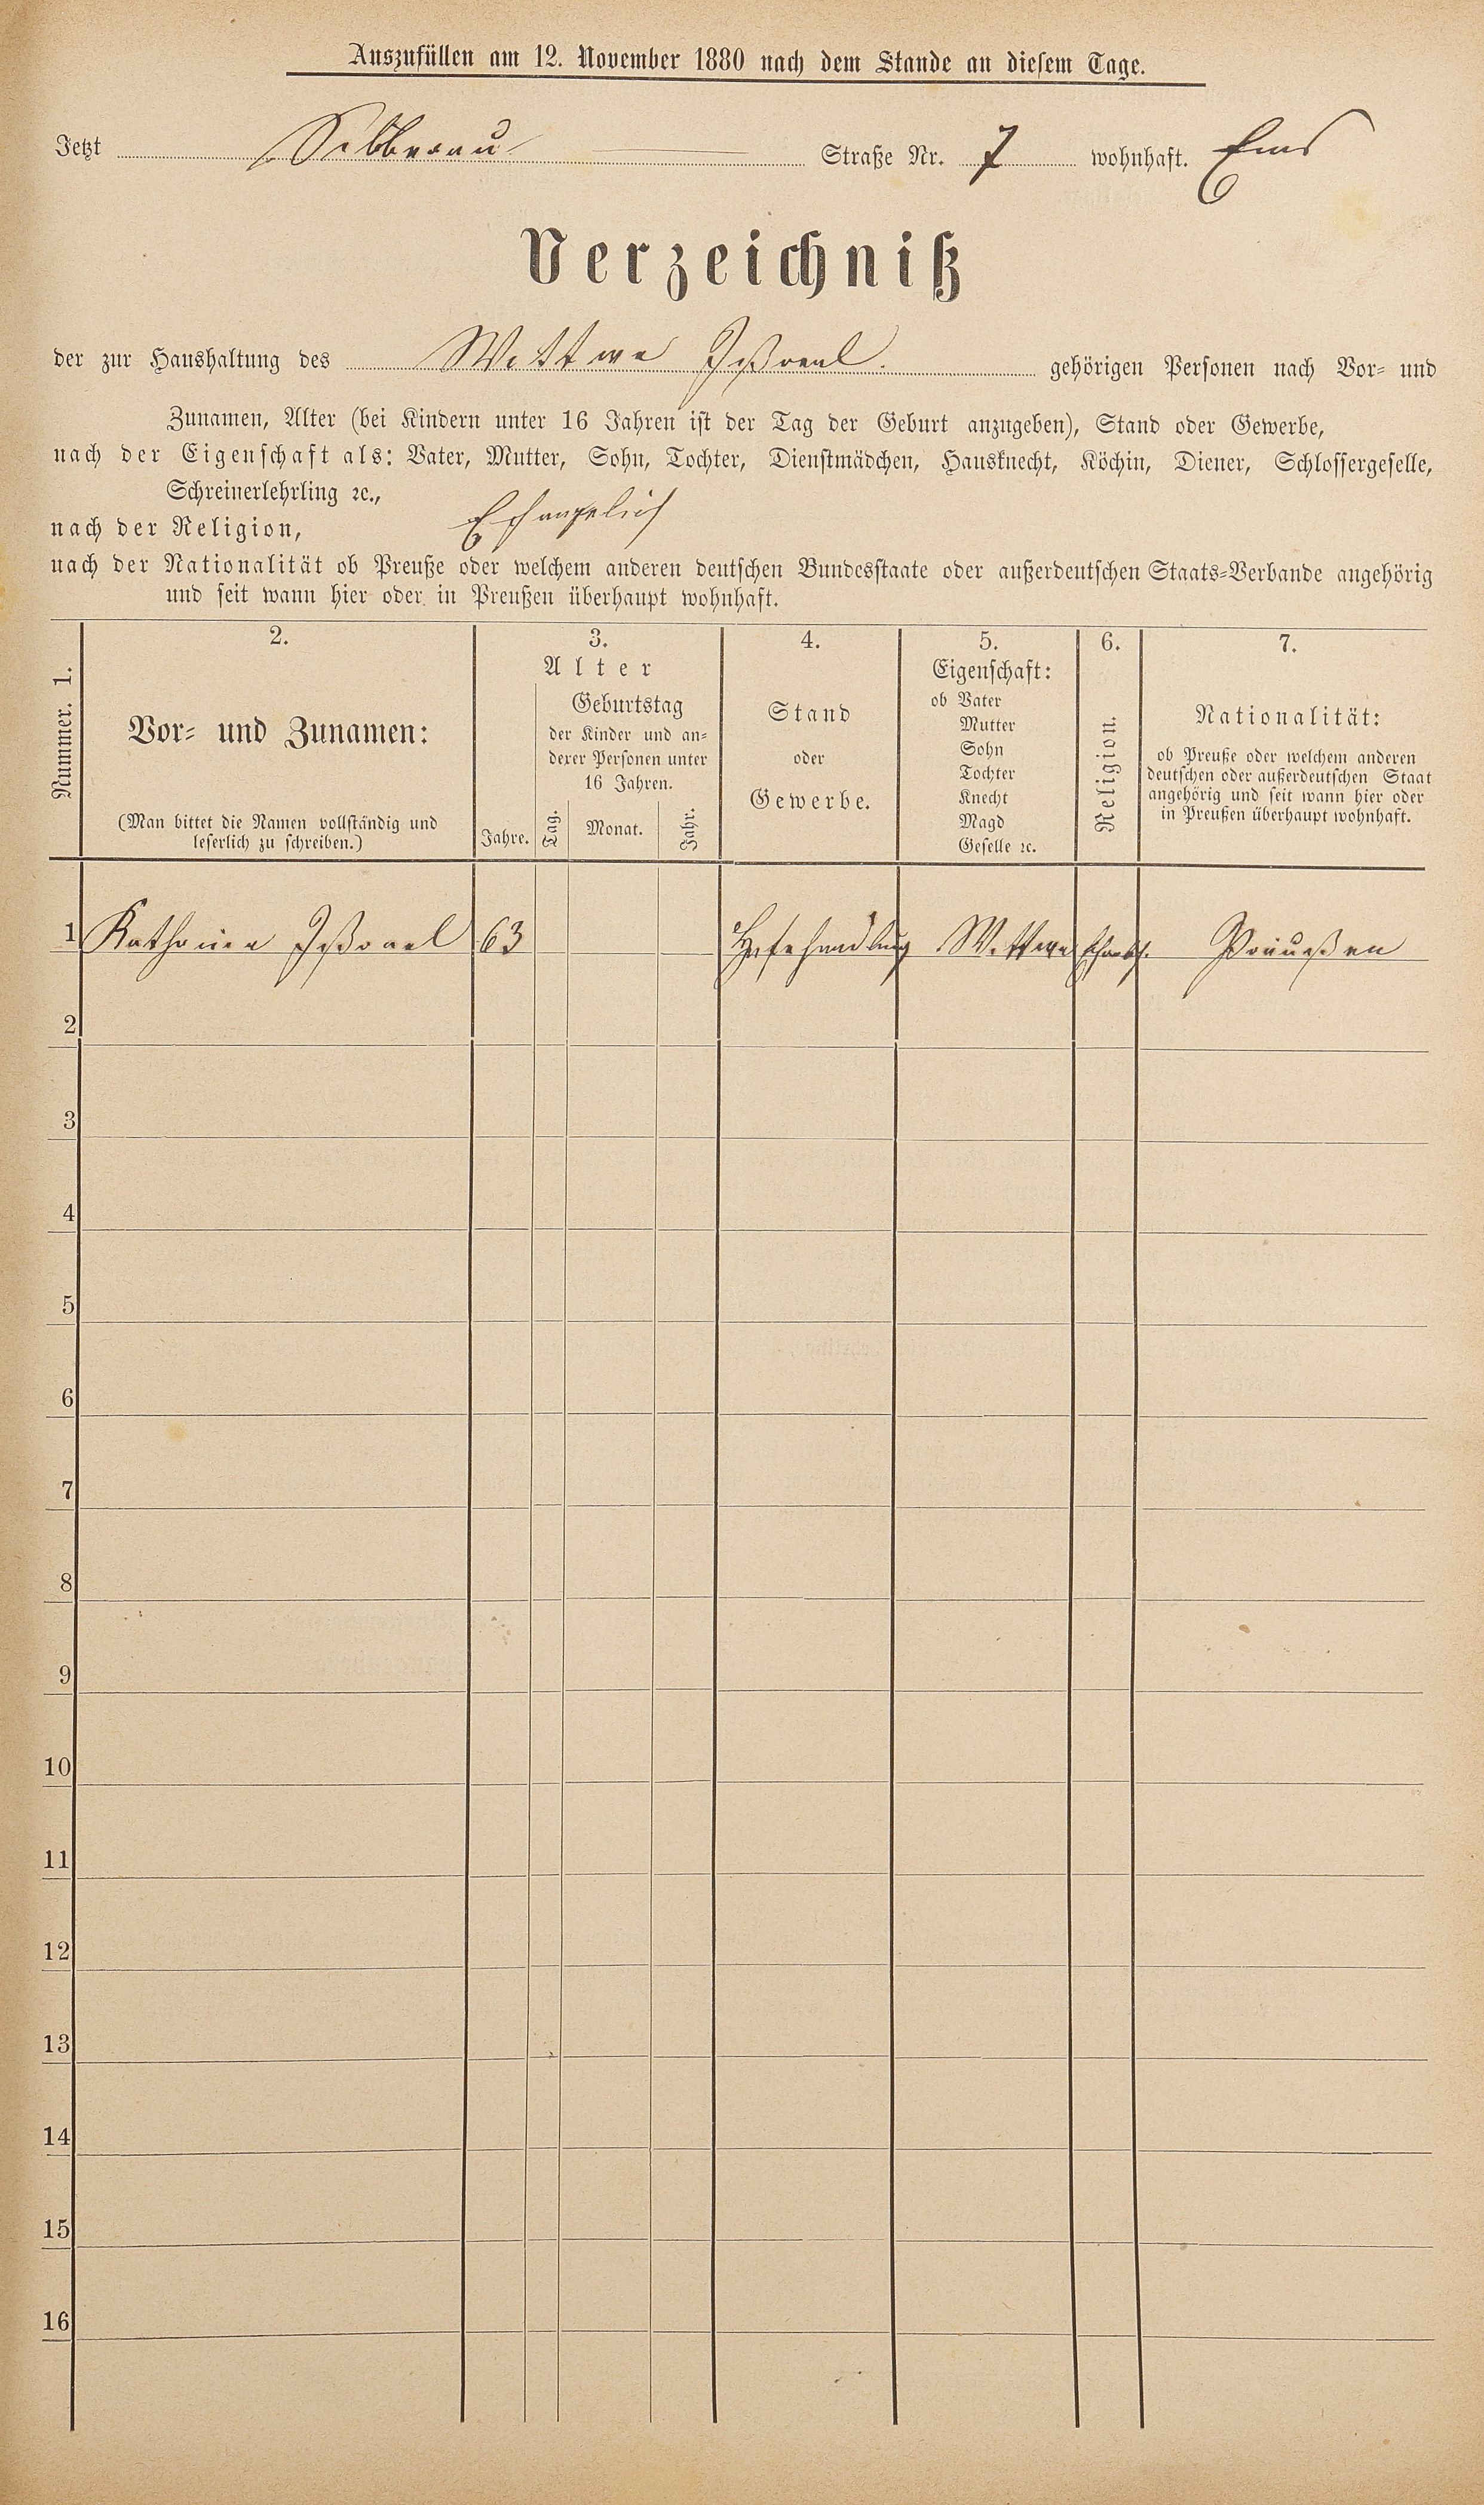 Auszufüllen am 12. November 1880 nach dem Stande an diesem Tage.
Jetzt Silberau Straße Nr. 7 wohnhaft. Ems
Verzeichniß
der zur Haushaltung des Wittwe Ißrael. gehörigen Personen nach Vor- und
Zunamen, Alter (bei Kindern unter 16 Jahren ist der Tag der Geburt anzugeben), Stand oder Gewerbe,
nach der Eigenschaft als: Vater, Mutter, Sohn, Tochter, Dienstmädchen, Hausknecht, Köchin, Diener, Schlossergeselle,
Schreinerlehrling ꝛc.,
nach der Religion,
nach der Nationalität ob Preuße oder welchem anderen deutschen Bundesstaate oder außerdeutschen Staats-Verbande angehörig
und seit wann hier oder in Preußen überhaupt wohnhaft.
Nummer. 1.
2.
Vor- und Zunamen:
(Man bittet die Namen vollständig und
leserlich zu schreiben.)
3.
Alter
Jahre.
Geburtstag
der Kinder und an-
derer Personen unter
16 Jahren.
Tag.
Monat.
Jahr.
4.
Stand
oder
Gewerbe.
5.
Eigenschaft:
ob Vater
Mutter
Sohn
Tochter
Knecht
Magd
Geselle ꝛc.
6.
Religion.
7.
Nationalität:
ob Preuße oder welchem anderen
deutschen oder außerdeutschen Staat
angehörig und seit wann hier oder
in Preußen überhaupt wohnhaft.
1 Katharina Ißrael 63 Hefehandlung Wittwe
2
3
4
5
6
7
8
9
10
11
12
13
14
15
16